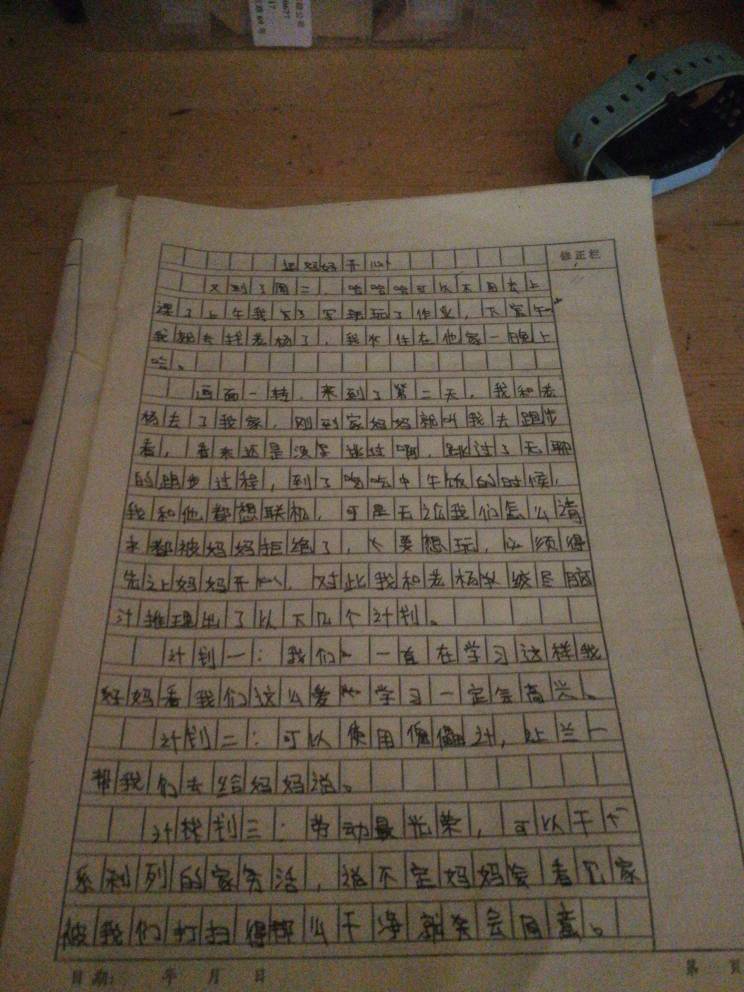 让妈妈开心
修正栏
又到了周二，哈哈哈可以不用去上
课了上午我写了作业，下午
我就去找老杨了，我在他家一晚上
哈。
画面一转，来到了第二天，我和老
杨去了我家，刚到家妈妈就叫我去跑步
看，看来还是没 跳过啊，跳过了无聊
的跑步过程，到了吃吃中午饭的时候，
我和他都想联机，可是无论我们怎么请
求都被妈妈拒绝了，要想玩，必须得
先让妈妈开心，对此我和老杨绞尽脑
汁推理出了以下几个计划。
计划一：我们一直在学习这样我
妈看我们这么爱学习一定会高兴。
计划二：可以使用傀儡计，让兰
帮我们去给妈妈说。
计划三：劳动最光荣，可以干
系列的家务活，说不定妈妈看见家
被我们打扫得那么干净就会同意。
日期： 年 月 日
第 页